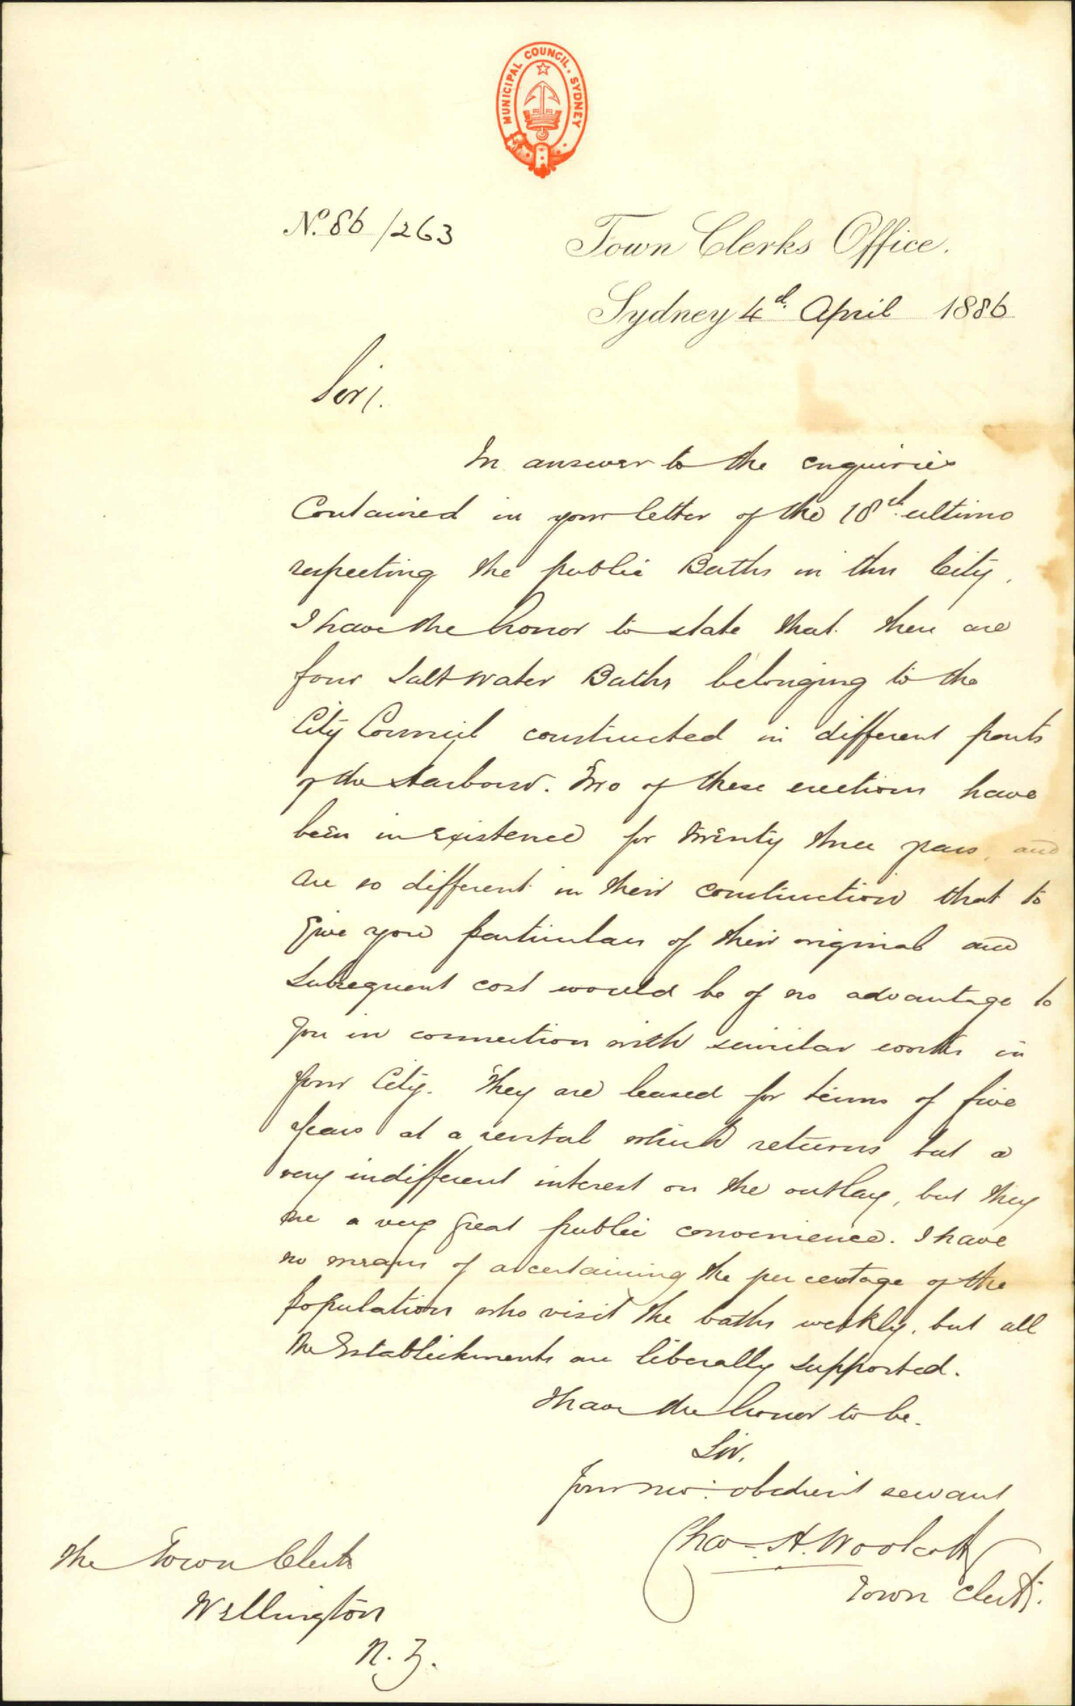 MUNICIPAL COUNCIL. SYDNEY
No. 86/263
Town Clerks Office.
Sydney 4th April 1886
Sir,
In answer to the enquiries
Contained in your letter of the 18th ultimo
respecting the public Baths in this City,
I have the honor to state that there are
four Salt Water Baths belonging to the
City Council constructed in different parts
of the Harbour. Two of these erections have
been in existence for twenty three years, and
are so different in their construction that to
give you particulars of their original and
subsequent cost would be of no advantage to
you in connection with similar works in
your City. They are leased for terms of five
years at a rental which returns but a
very indifferent interest on the outlay, but they
are a very great public convenience. I have
no means of ascertaining the per centage of the
population who visit the baths weekly, but all
the Establishments are liberally supported.
I have the honor to be.
Sir,
Your mo: obedient servant
Chas. H. Woolcott
Town Clerk.
The Town Clerk
Wellington
N. Z.